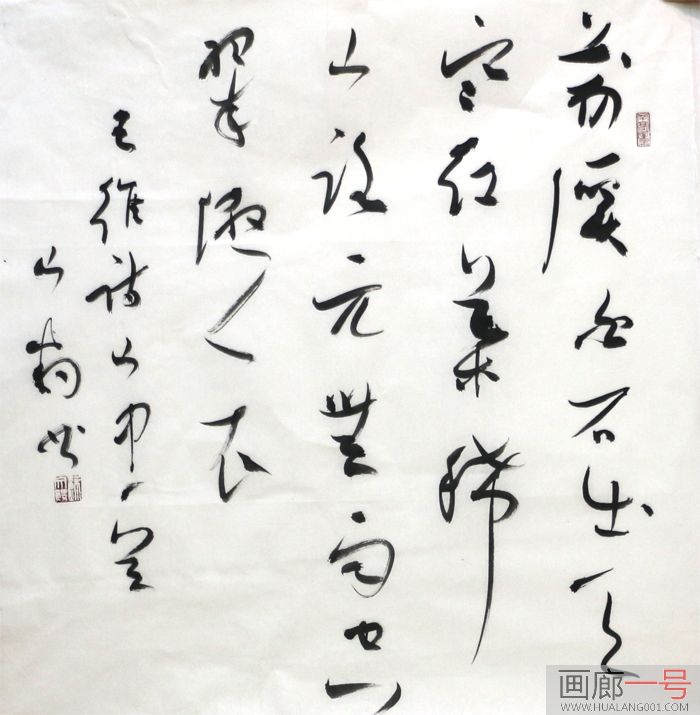 荆溪白石出天
寒紅葉稀
山路元無雨空
翠濕人衣
王維詩山中
山
画廊一号
WWW.HUALANG001.COM